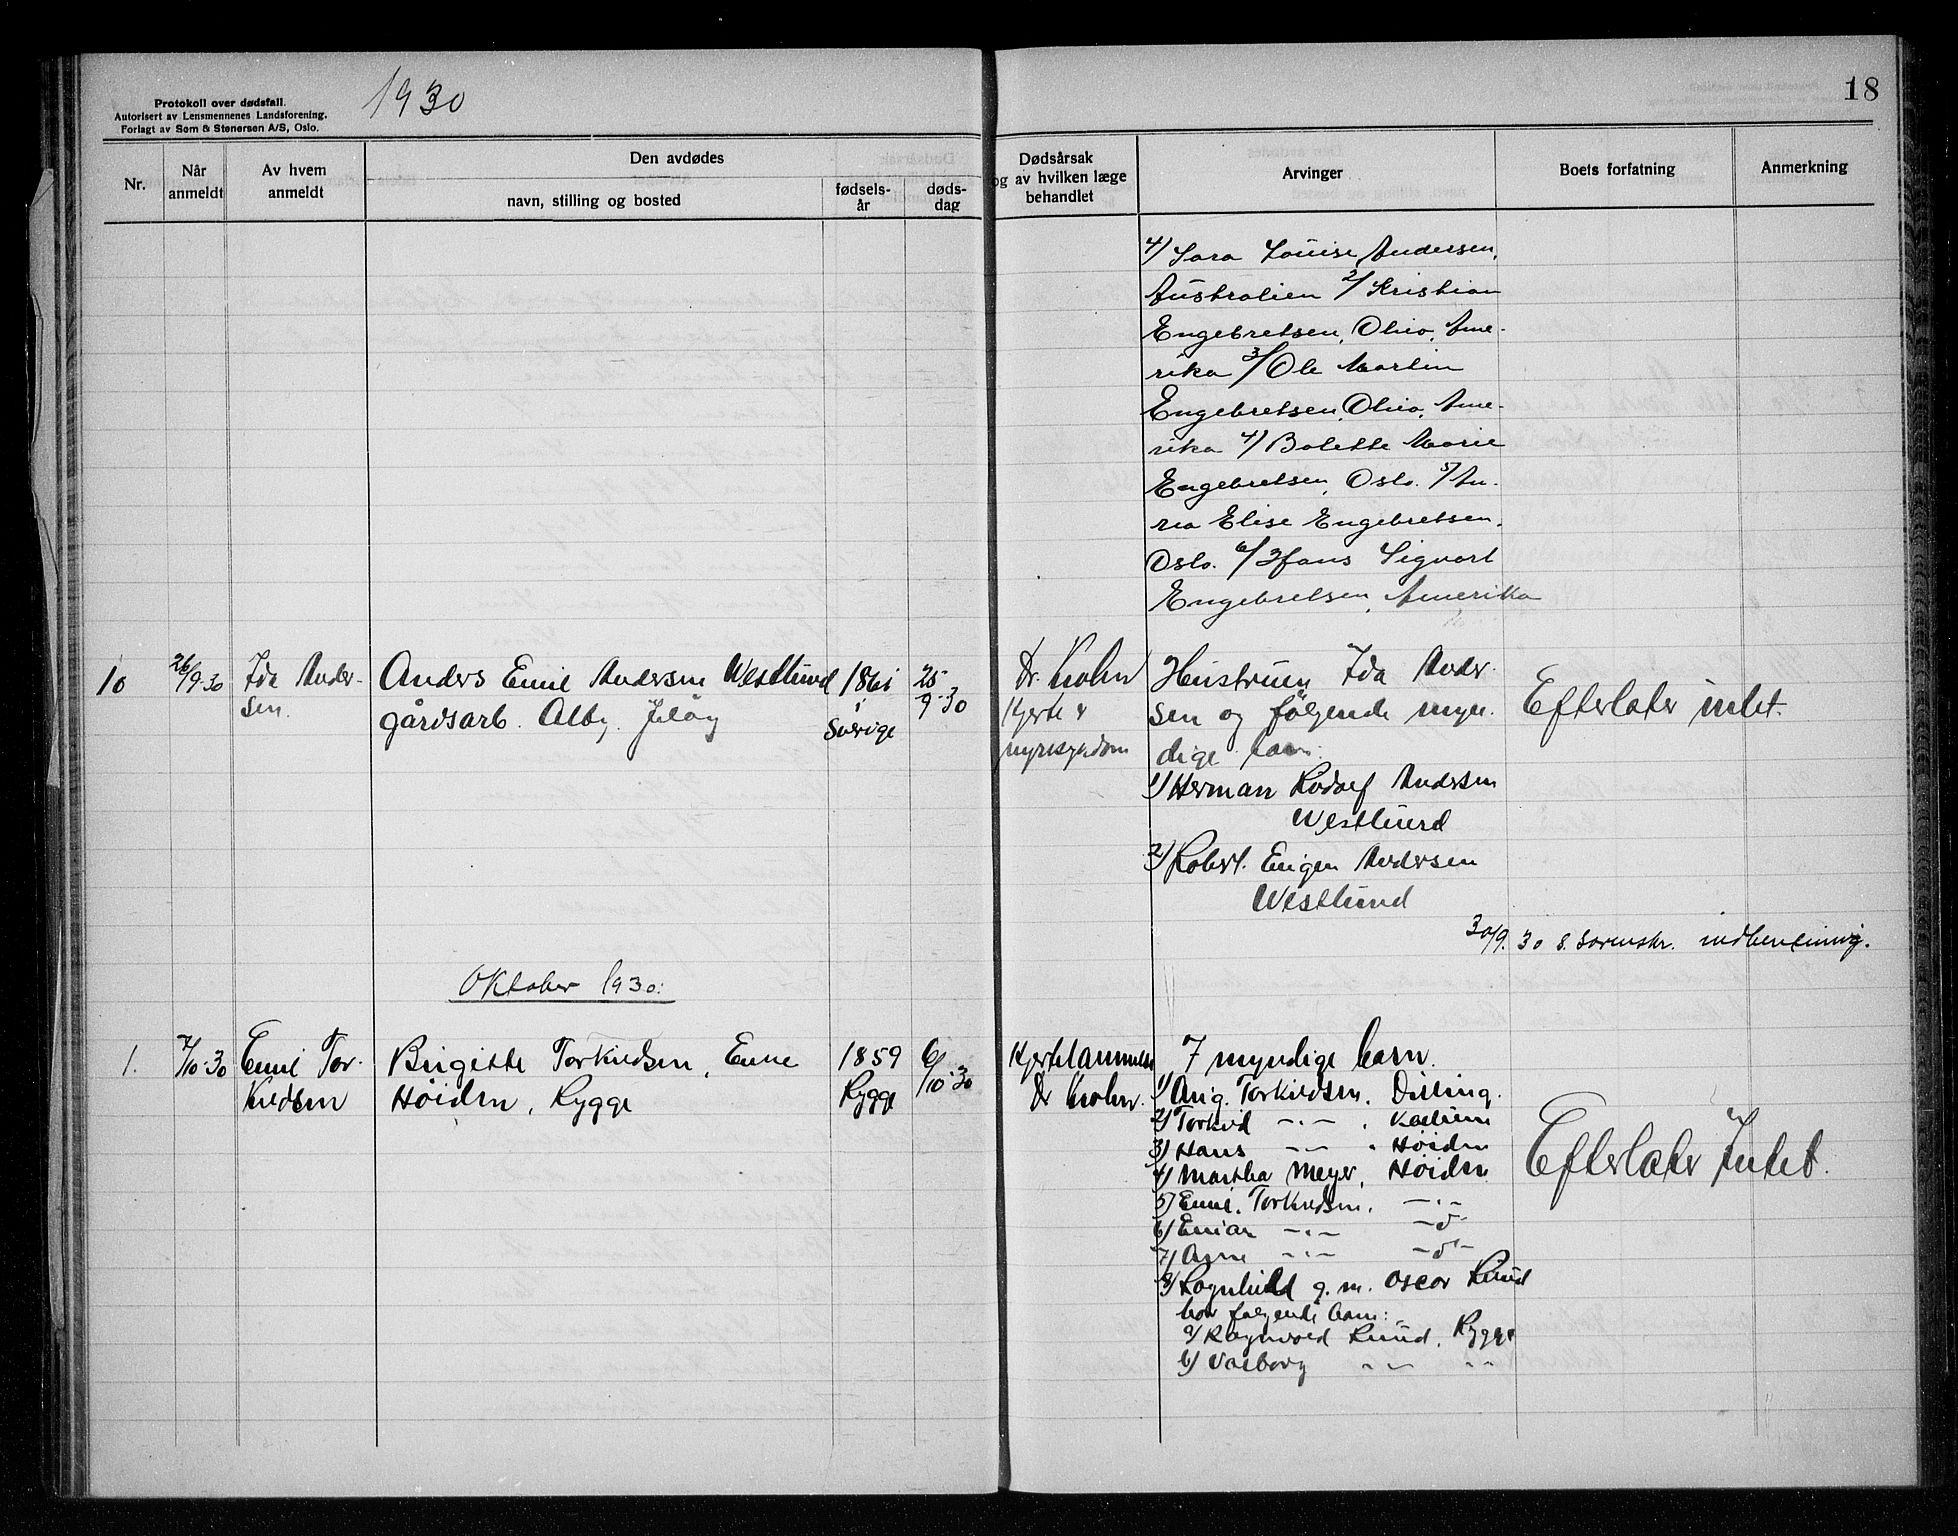 Protokoll over dødsfall.
Autorisert av Lensmennenes Landsforening.
Forlagt av Søm & Stenersen A/S, Oslo.
1930
18
Nr.
Når anmeldt
Av hvem anmeldt
Den avdødes
navn, stilling og bosted
fødsels-år
døds-dag
Dødsårsak
og av hvilken læge
behandlet
Arvinger
Boets forfatning
Anmerkning
Sara Louise Andersen,
Australien 2/ Kristian
Engebretsen, Ohio, Ame-
rika 3/ Ole Martin
Engebretsen, Ohio, Ame-
rika 4/ Bolette Marie
Engebretsen, Oslo. 5/
Elise Engebretsen,
Oslo. 6/ Hans Sigvart
Engebretsen, Amerika
10
26/9-30
Ida Ander-
sen.
Anders Emil Andersen Westlund
gårdsarb. Alby, Jeløy
1861
i
Sverige
25-
9-30
Dr. Krohn
Hjerte &
nyresygdom
Hustruen Ida Ander-
sen og følgende myn-
dige barn:
1/ Herman Rudolf Andersen
Westlund
2/ Robert Eugen Andersen
Westlund
Efterlater intet.
30/9.30 s. Sorenskr. indberetning.
Oktober 1930:
1.
7/10-30
Emil Tor-
kildsen
Birgitte Torkildsen, Enke
Høiden, Rygge
1859
Rygge
6/
10-30
Hjertelammelse
Dr Krohn.
7 myndige barn.
1/ Aug. Torkildsen, Dilling.
2/ Torkild -"-
3/ Hans -"- " Høiden
4/ Martha Meyer, Høiden
5/ Emil Torkildsen, -"-
6/ Einar -"- -"-
7/ Arne -"- -"-
8/ Ragnhild g. m. Oscar Ruud
har følgende barn:
a/ Ragnvald Ruud, Rygge
b/ Valborg -"- -"-
Efterlater Intet.